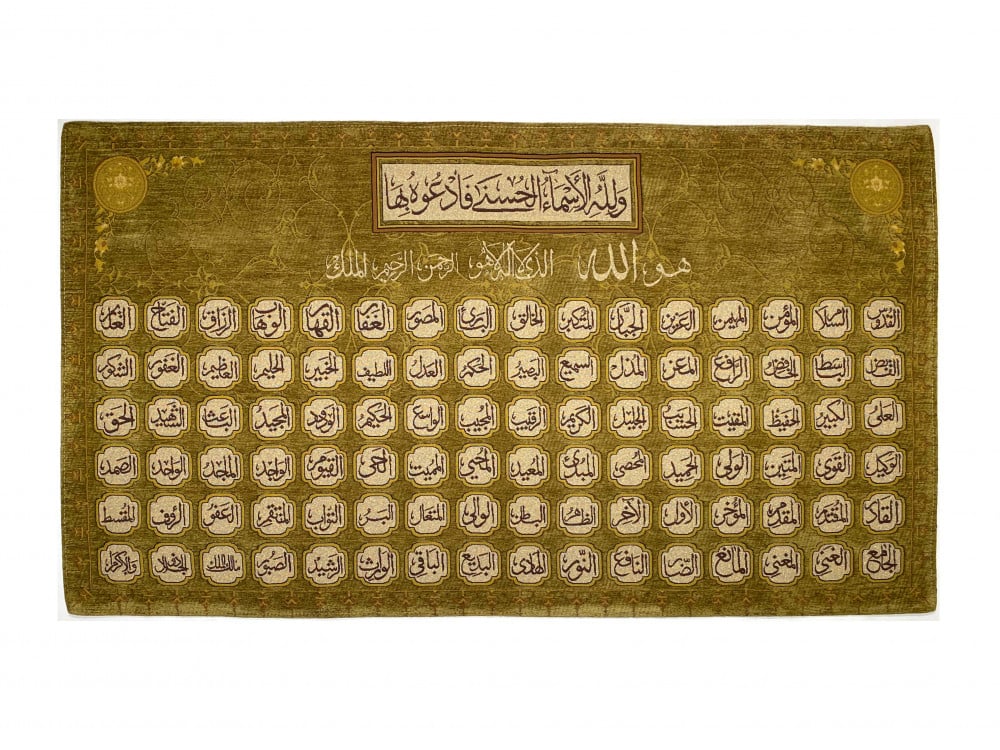 ولله الأسماء الحسنى فادعوه بها
هو الله الذي لا إله إلا هو الرحمن الرحيم الملك
القدوس السلام المؤمن المهيمن العزيز الجبار المتكبر الخالق البارئ المصور الغفار القهار الوهاب الرزاق الفتاح العليم
القابض الباسط الخافض الرافع المعز المذل السميع البصير الحكم العدل اللطيف الخبير الحليم العظيم الغفور الشكور
العلي الكبير الحفيظ المقيت الحسيب الجليل الكريم الرقيب المجيب الواسع الحكيم الودود المجيد الباعث الشهيد الحق
الوكيل القوي المتين الولي الحميد المحصي المبدئ المعيد المحيي المميت الحي القيوم الواجد الماجد الواحد الصمد
القادر المقتدر المقدم المؤخر الأول الآخر الظاهر الباطن الوالي المتعال البر التواب المنتقم العفو الرؤف المقسط
الجامع الغني المغني المانع الضار النافع النور الهادي البديع الباقي الوارث الرشيد الصبور مالك الملك ذو الجلال والإكرام